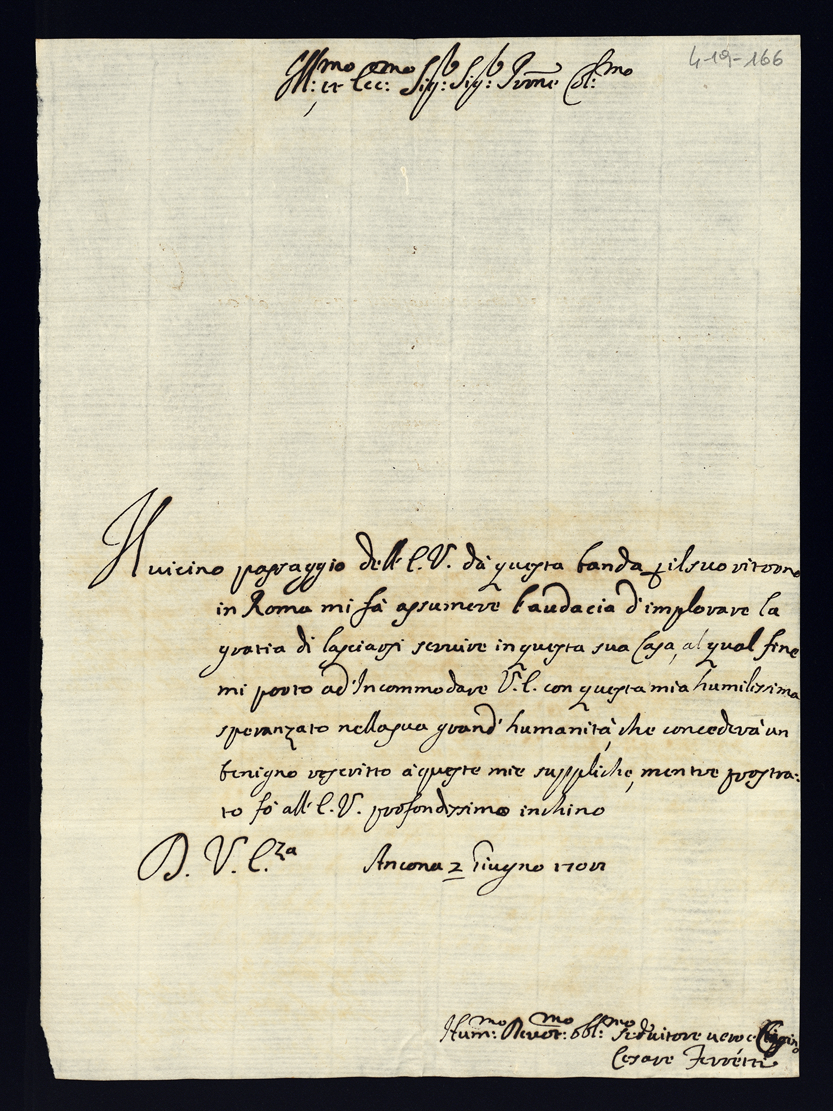 4-19-166
Ill:mo et Ecc:mo Sig:r Sig:r Pron͞e Col:mo
Il uicino passaggio dell' E. V. dà questa banda p il suo ritorno
in Roma mi fà assumere l'audacia d'implorare la
gratia di lasciarsi seruire in questa sua Casa, al qual fine
mi porto ad' Incommodare V. E. con questa mia humilissima
speranzato nella sua grand' humanità, che concederà un
benigno rescritto à queste mie suppliche, mentre prostra:
to fò all' E. V. profondissimo inchino
D. V. E.za Ancona 2 Giugno
Hum:mo Deuot:mo obl:mo Seruitore uero e
Cesare Ferretti